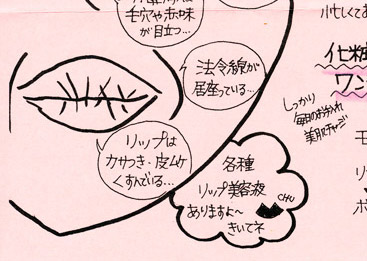 毛穴や赤味
が目立つ…
法令線が
居座っている…
リップは
カサつき・皮ムケ
くすんでいる…
各種
リップ美容液
ありますよ～
きいてネ
CHU
忙しくてお
化粧
ワン
しっかり
毎日のお手入れ
美肌チャージ